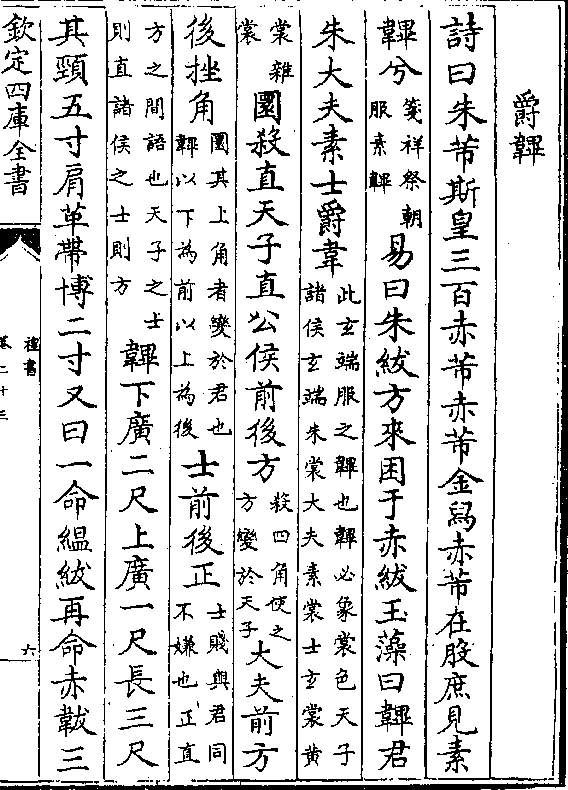 爵韠
詩曰朱芾斯皇三百赤芾赤芾金舄赤芾在股庶見素
韠兮箋祥祭朝服素韠易曰朱紱方來困于赤紱玉藻曰韠君
朱大夫素士爵韋此玄端服之韠也韠必象裳色天子諸侯玄端朱裳大夫素裳士玄裳黄
裳雜裳圜殺直天子直公侯前後方殺四角使之方變於天子大夫前方
後挫角圜其上角者變於君也韠以下為前以上為後士前後正士賤與君同不嫌也正直
方之間語也天子之士則直諸侯之士則方韠下廣二尺上廣一尺長三尺
其頸五寸肩革帶博二寸又曰一命緼紱再命赤韍三
欽定四庫全書
禮書
卷二十三
六